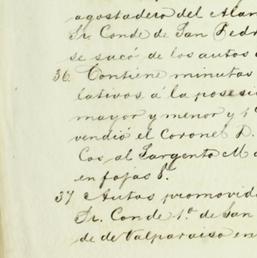 agostadero del Alam
Sr. Conde de San Pedr
se sacó de los autos
36 Contiene minutas
lativos á la posesi
mayor y menor y 1
vendió el Coronel D.
Cos al Sargento M
en fojas 8ª
37 Autos promovid
Sr. Conde 1º de San
de de Valparaiso en